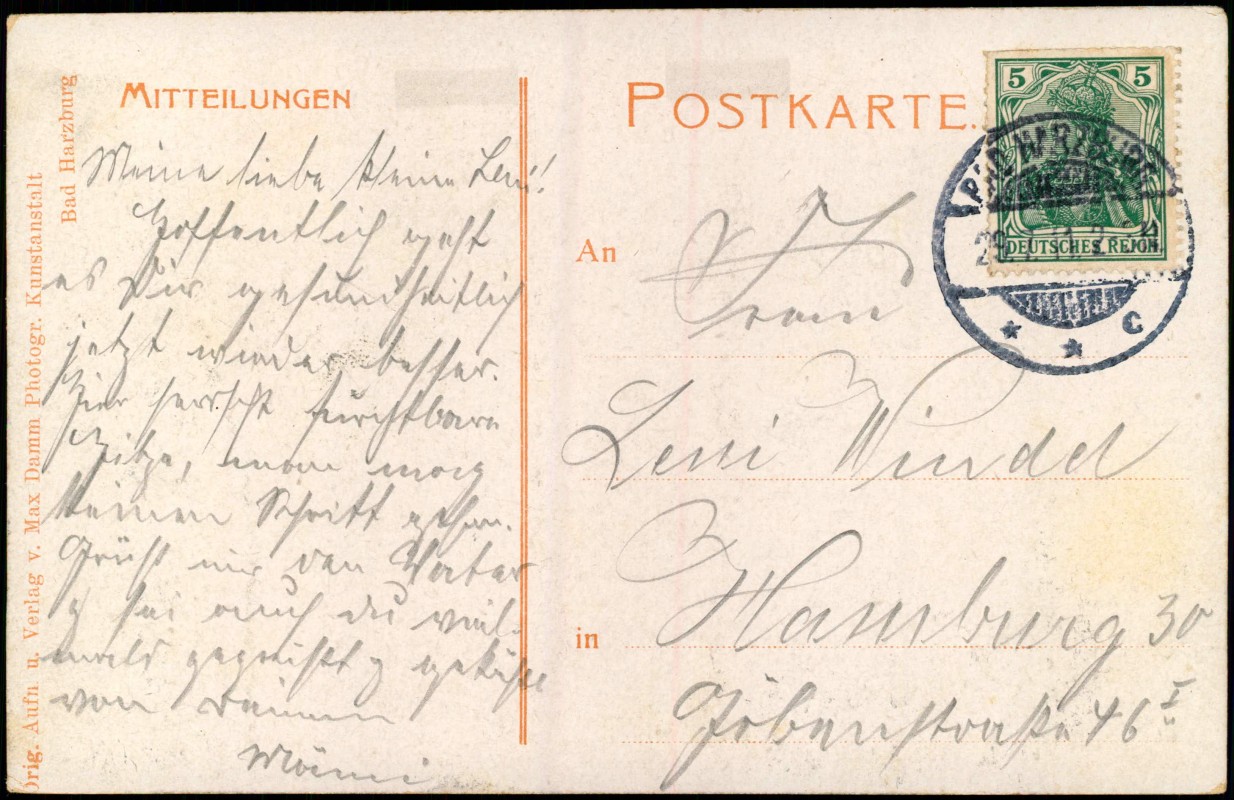 MITTEILUNGEN
Meine liebe kleine Leni!
Hoffentlich geht
es Dir gesundheitlich
jetzt wieder besser.
Hier herrscht furchtbare
Hitze, man mag
keinen Schritt gehen.
Grüß mir den Vater
& sei auch du viel-
mals gegrüßt & geküßt
von Deinem
Orig. Aufn u. Verlag v. Max Damm Photogr. Kunstanstalt
Bad Harzburg
POSTKARTE.
5 5
DEUTSCHES REICH
BAD HARZBURG
C
An Frau
Leni Windel
in Hamburg 30
46 I